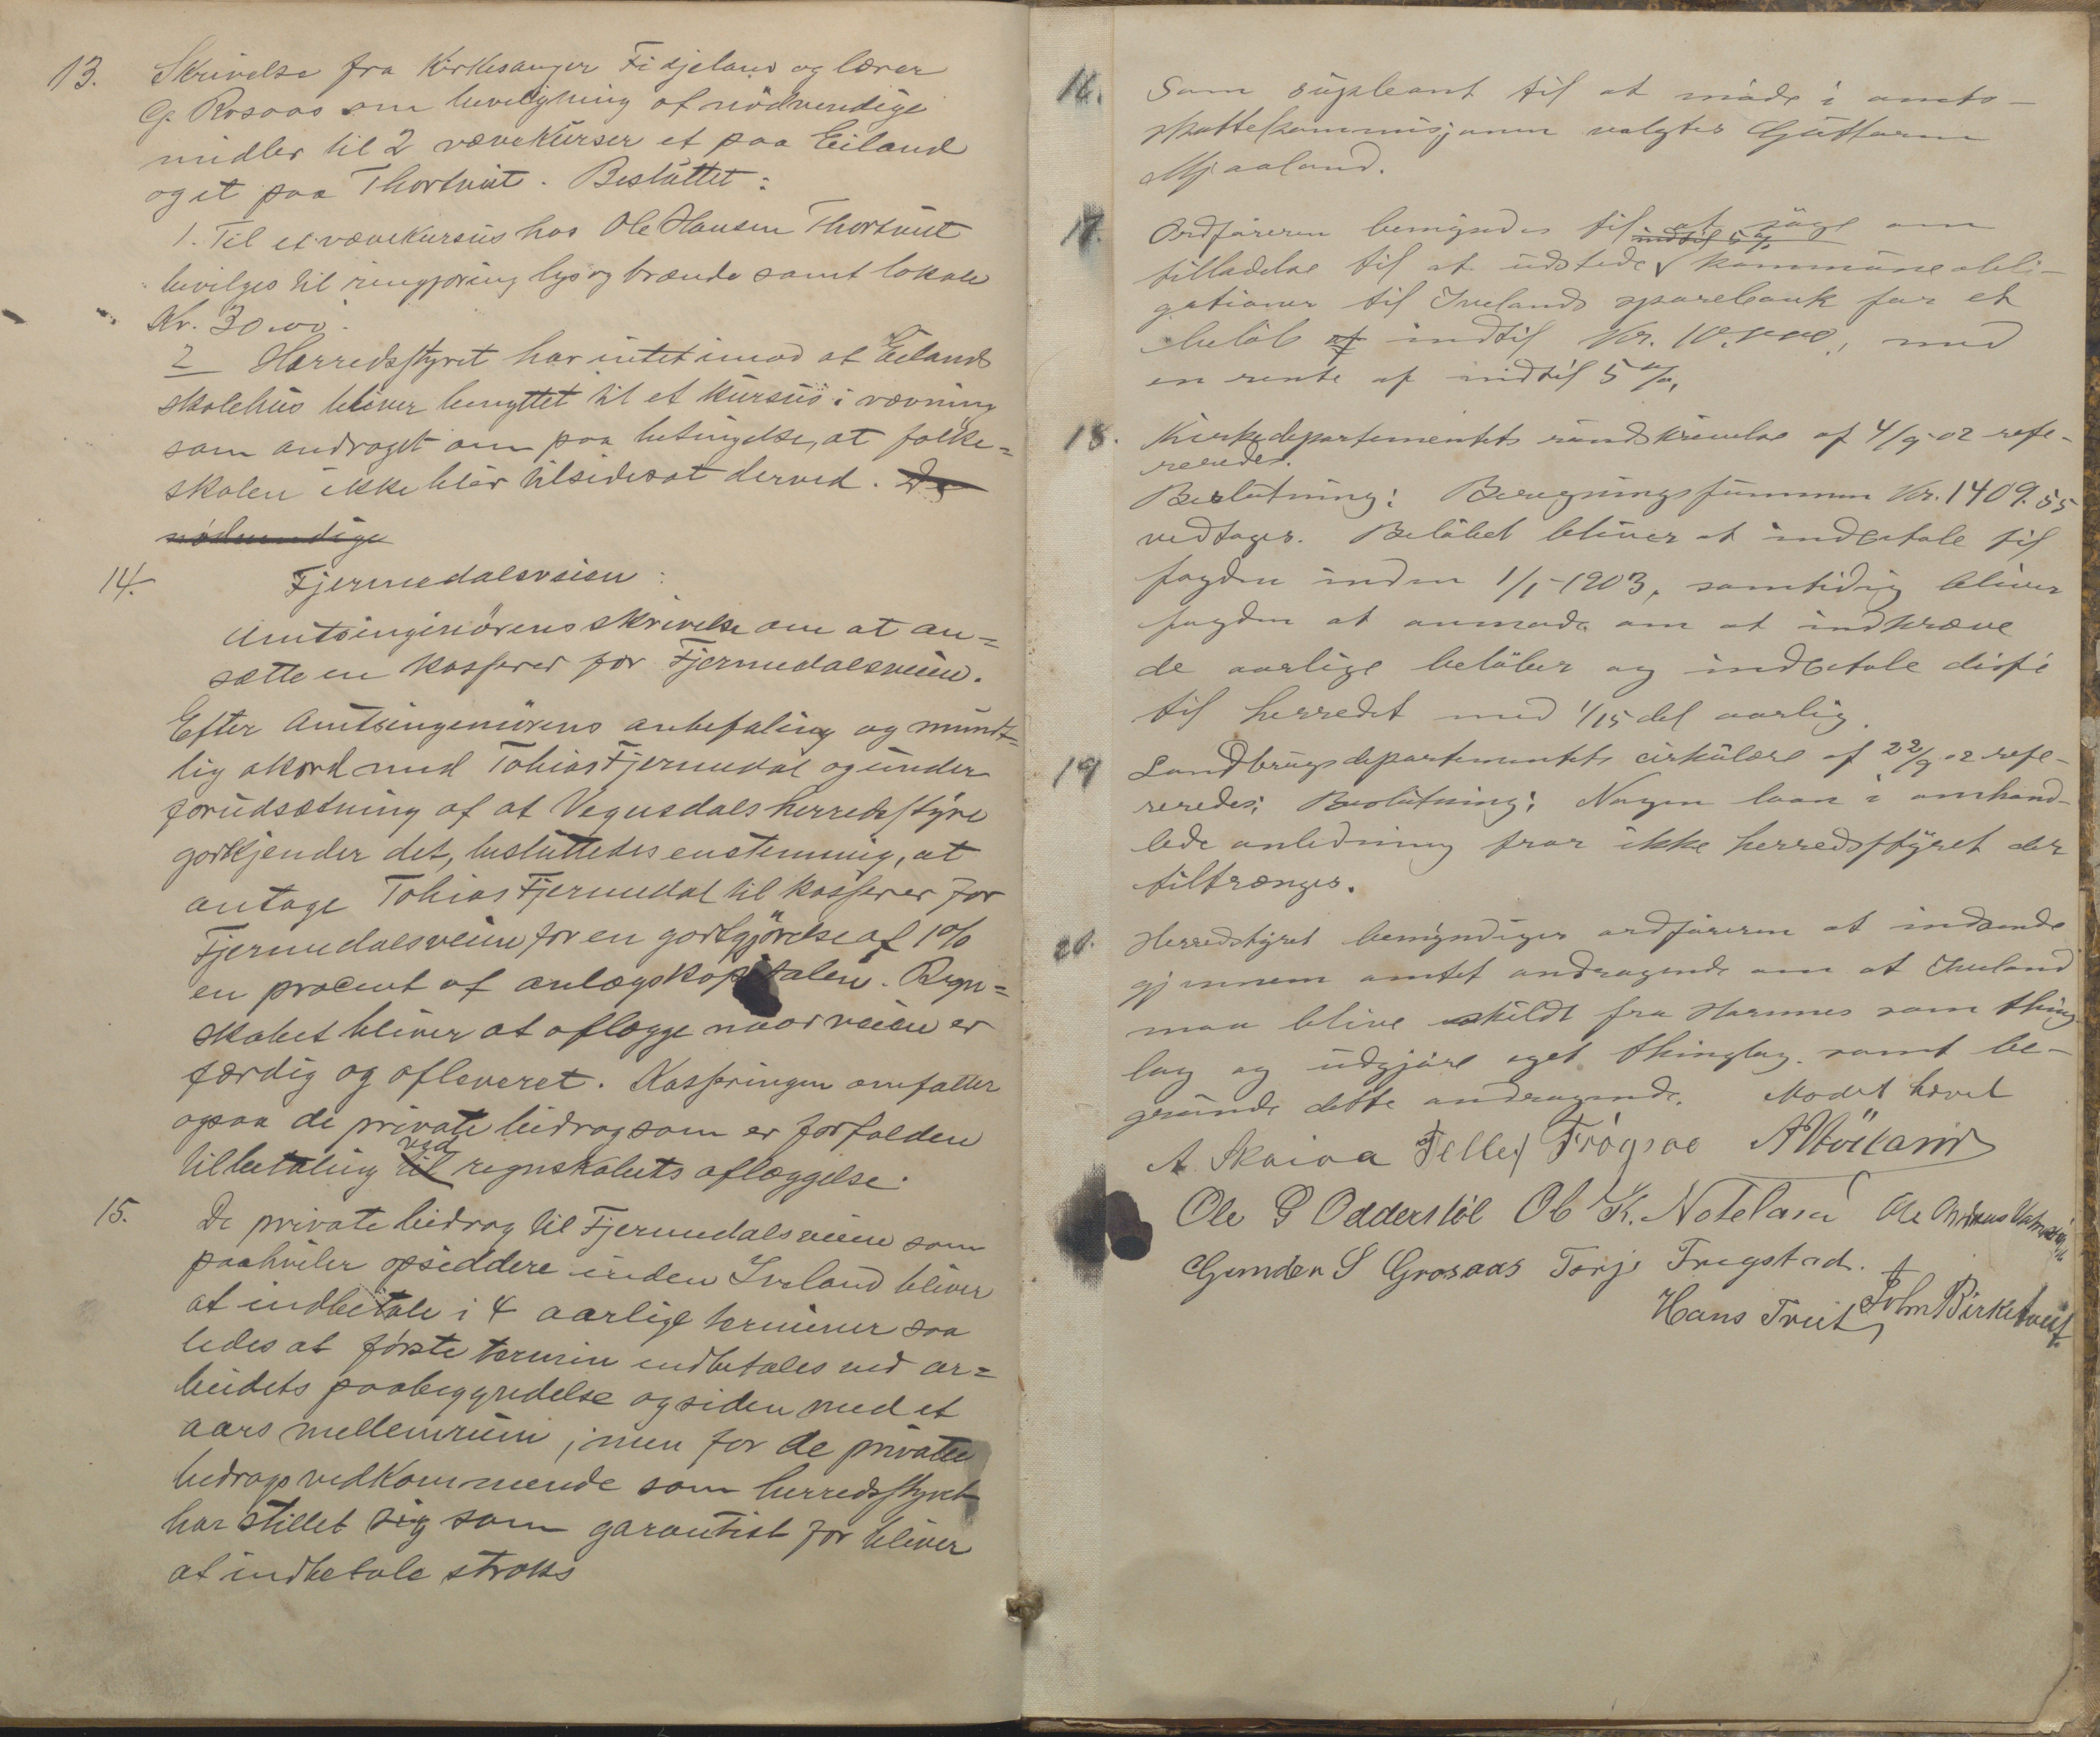 13. Skrivelse fra Kirkesanger Fidjeland og lærer
G. Rosaas om bevilgning af nödvendige
midler til 2 vævekurser et paa Eiland
og et paa Thortveit. Besluttet:
1. Til et vævekursus hos Ole Hansen Thortveit
bevilges til rengjøring lys og brænde samt lokale
Kr. 30.00.
2 Herredsstyret har intet imod at Eilands
skolehus bliver benyttet til et kursus i vævning
som andraget om paa betingelse, at folke=
skolen ikke blir tilsidesat derved. De
nødvendige
14. Fjermedalsveien:
Amtsingeniörens skrivelse om at an=
sætte en kasserer for Fjermedalsveien.
Efter Amtsingeniörens anbefaling og mundt=
lig akord med Tobias Fjermedal og under
forudsætning af at Vegusdals herredsstyre
godkjender det, besluttedes enstemmig, at
antage Tobias Fjermedal til kasserer for
Fjermedalsveien for en godtgjörelse af 1%
en procent af anlægskapitalen. Regn=
skabet bliver at aflægge naar veien er
færdig og afleveret. Kasseringen omfatter
ogsaa de private bidrag som er forfalden
til betaling til ved regnskabets aflæggelse.
15. De private bidrag til Fjermedalsveien som
paahviler opsiddere inden Iveland bliver
at indbetale i 4 aarlige terminer saa
ledes at første termin indbetales ved ar=
beidets paabegyndelse og siden med et
aars mellemrum, men for de private
bidrags vedkommende som herredsstyret
har stillet sig som garantist for bliver
at indbetale straks
16. Som supleant til at møde i amts-
skattekommisjonen valgtes Guttorm
Mjaaland.
17. Ordføreren bemyndes til at søge om
tilladelse til at udstede indtil 5 % kommuneobli-
gationer til Ivelands sparebank for et
beløb af indtil Kr. 10.000, med
en rente af indtil 5 %.
18. Kirkedepartementets rundskrivelse af 4/9-02 refe-
reredes.
Beslutning: Beregningssummen Kr. 1409.55
vedtages. Beløbet bliver at indbetale til
fogden inden 1/1-1903, samtidig bliver
fogden at anmode om at indkræve
de aarlige beløber og indbetale disse
til herredet med 1/15 del aarlig.
19 Landbrugsdepartementets cirkulære af 22/9 02 refe-
reredes; Beslutning: Nogen laan i omhand-
lede anledning tror ikke herredsstyret der
tiltrænges.
20. Herredstyret bemyndiger ordføreren at indsende
gjennem amtet andragende om at Iveland
maa blive skildt fra Hornnes som thing-
lag og udgjøre eget thinglag samt be-
grunde dette andragende. Mødet hævet
A. Skaiaa Tellef Frøgsaa
Ole G Odderstøl Ole K. Noteland Ole
Gunder S Grosaas Torje Frigstad.
Hans Tveit John Birketveit